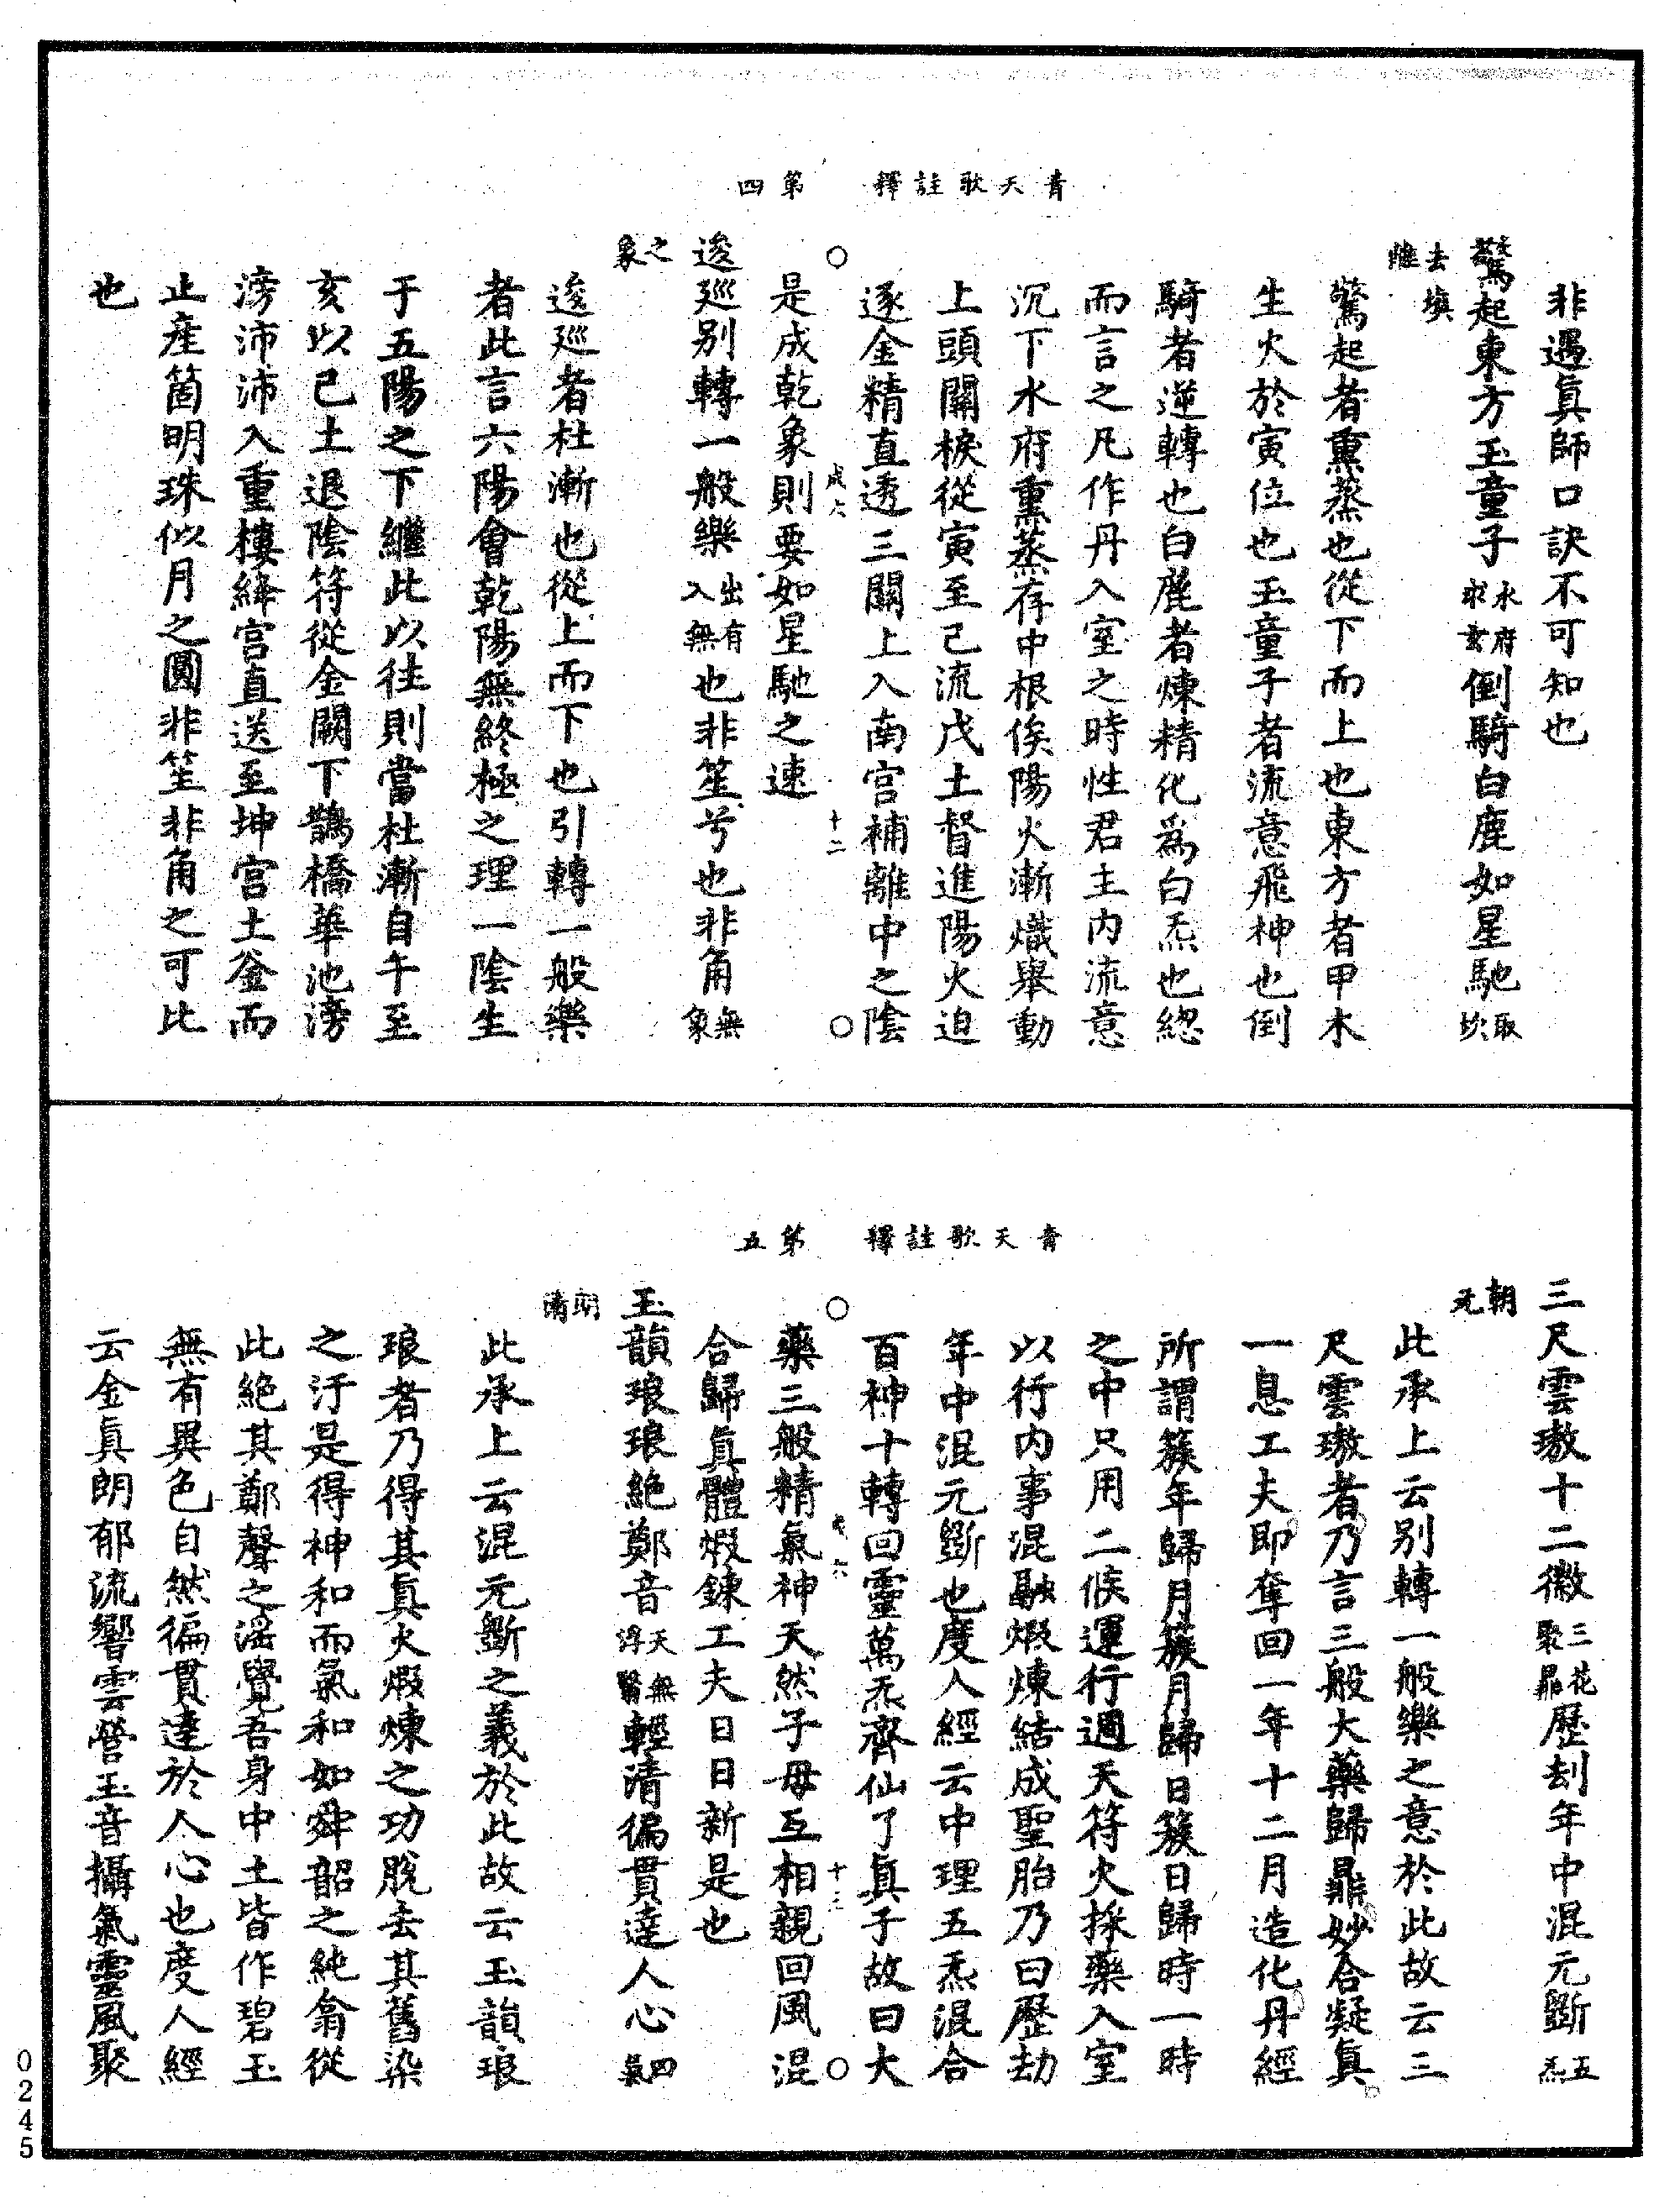 青天歌註釋　第四
非遇眞師口訣不可知也
驚起東方玉童子水府求玄倒騎白鹿如星馳取坎
去塡離
驚起者熏蒸也從下而上也東方者甲木
生火於寅位也玉童子者流意飛神也倒
騎者逆轉也白鹿者煉精化爲白炁也總
而言之凡作丹入室之時性君主内流意
沉下水府熏蒸存中根俟陽火漸熾舉動
上頭關捩從寅至己流戊土督進陽火迫
逐金精直透三關上入南宮補離中之陰
○　戌六　十二　○
是成乾象則要如星馳之速
逡廵別轉一般樂出有入無也非笙兮也非角無象
之象
逡廵者杜漸也從上而下也引轉一般樂
者此言六陽會乾陽無終極之理一陰生
于五陽之下繼此以往則當杜漸自午至
亥以己土退陰符從金闕下鵲橋華池滂
滂沛沛入重樓絳宮直送至坤宮土釜而
止產箇明珠似月之圓非笙非角之可比
也
青天歌註釋　第五
三尺雲璈十二徽三花聚鼎歷刦年中混元斵五炁
朝元
此承上云別轉一般樂之意於此故云三
尺雲璈者乃言三般大藥歸鼎妙合凝眞
一息工夫即奪回一年十二月造化丹經
所謂簇年歸月簇月歸日簇日歸時一時
之中只用二候運行週天符火採藥入室
以行内事混融煆煉結成聖胎乃曰歷劫
年中混元斵也度人經云中理五炁混合
百神十轉回靈萬炁齊仙了眞子故曰大
○　戌六　十三　○
藥三般精氣神天然子母互相親回風混
合歸眞體煆鍊工夫日日新是也
玉韻琅琅絶鄭音天無浮翳輕清徧貫達人心四氣
朗清
此承上云混元斵之義於此故云玉韻琅
琅者乃得其眞火煆煉之功脫去其舊染
之汙是得神和而氣和如舜韶之純翕從
此絶其鄭聲之滛覺吾身中土皆作碧玉
無有異色自然徧貫達於人心也度人經
云金眞朗郁流響雲營玉音攝氣靈風聚
0245